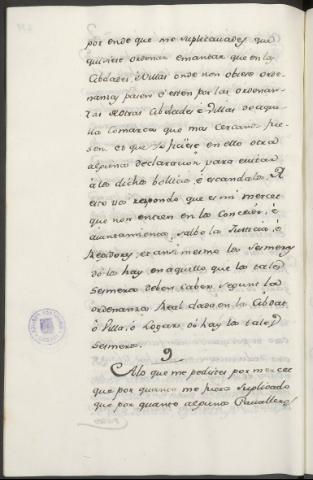 por ende que me suplicavades que
quisiese ordenar e mandar que en las
Cibdades é Villas onde non obiere orde-
nanzas pasen é esten por las ordenan-
zas de otras Cibdades é Villas de aque-
lla comarca que mas cercanas fue-
sen et que Yo ficiese en ello otra
alguna declaracion para evitar
á los dichos bollicios, é escandalos. A
esto vos respondo que es mi merced
que non entren en los Concejos, é
aiuntamientos, salbo la Justicia, é
Regidores, et ansi mesmo los Sesmeros
do los hay en aquello que los tales
Sesmeros deben caber segunt la
ordenanza Real dada en la Cibdat
ó Villa, ó Logares do hay los tales
Sesmeros.
9
A lo que me pedistes por merced
que por quanto me fuera suplicado
que por quanto algunos Cavalleros